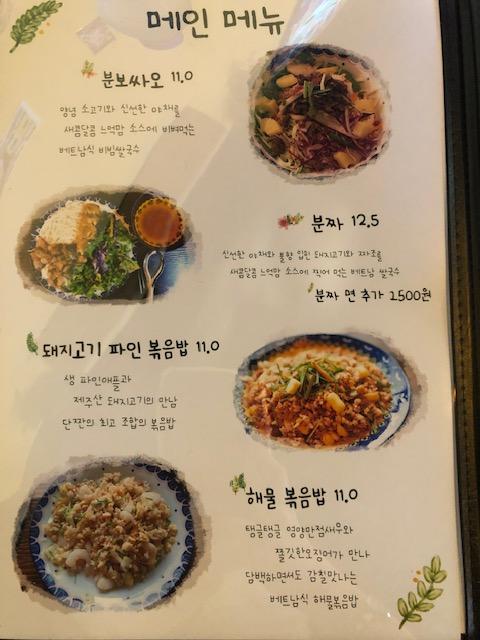 메인 메뉴
분보싸오 11.0
양념 소고기와 신선한 야채를
새콤달콤 느억맘 소스에 비벼먹는
베트남식 비빔쌀국수
분짜 12.5
신선한 야채와 불향 입힌 돼지고기와 짜조를
새콤달콤 느억맘 소스에 찍어 먹는 베트남 쌀국수
분짜 면 추가 2500원
돼지고기 파인 볶음밥 11.0
생 파인애플과
제주산 돼지고기의 만남
단짠의 최고 조합의 볶음밥
해물 볶음밥 11.0
탱글탱글 영양만점새우와
쫄깃한오징어가 만나
담백하면서도 감칠맛나는
베트남식 해물볶음밥